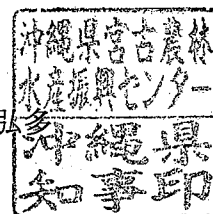 沖縄県宮古農林
水産振興センター
弘多
沖縄県
知事印